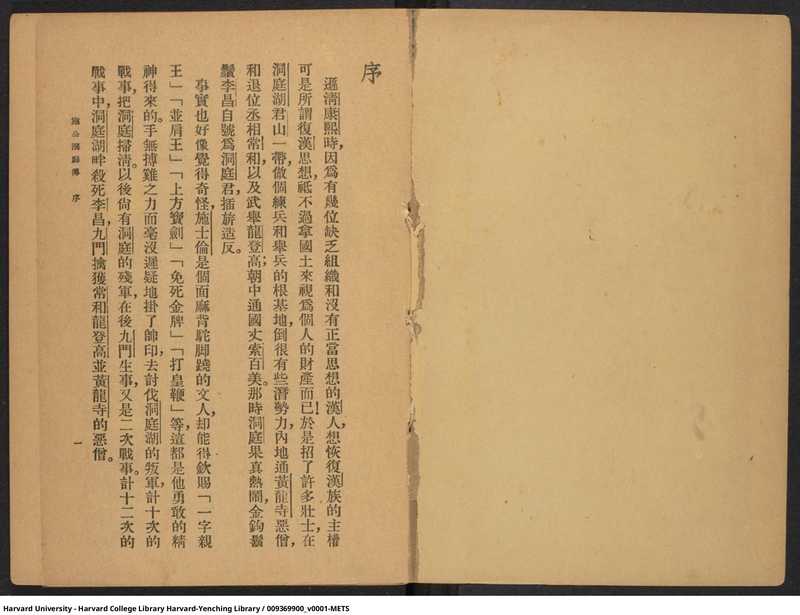 序
遜淸康熙時，因爲有幾位缺乏組織和沒有正當思想的漢人，想恢復漢族的主權
可是所謂復漢思想，祗不過拿國土來視爲個人的財產而已！於是招了許多壯士，在
洞庭湖君山一帶，做個練兵和舉兵的根基地，倒很有些潛勢力，內地通黃龍寺惡僧，
和退位丞相常和，以及武舉龍登高；朝中通國丈索百美。那時洞庭果真熱鬧，金鉤鬍
鬚李昌自號爲洞庭君，插旂造反。
事實也好像覺得奇怪，施士倫是個面麻背駝脚蹺的文人，却能得欽賜「一字親
王」「並肩王」「上方寶劍」「免死金牌」「打皇鞭」等，這都是他勇敢的精
神得來的。手無搏雞之力而毫沒遲疑地掛了帥印，去討伐洞庭湖的叛軍，計十次的
戰事，把洞庭掃清。以後尙有洞庭的殘軍，在後九門生事，又是二次戰事。計十二次的
戰事中，洞庭湖畔殺死李昌，九門擒獲常和龍登高並黃龍寺的惡僧。
施公洞庭傳 序
一
Harvard University - Harvard College Library Harvard-Yenching Library / 009369900_v0001-METS